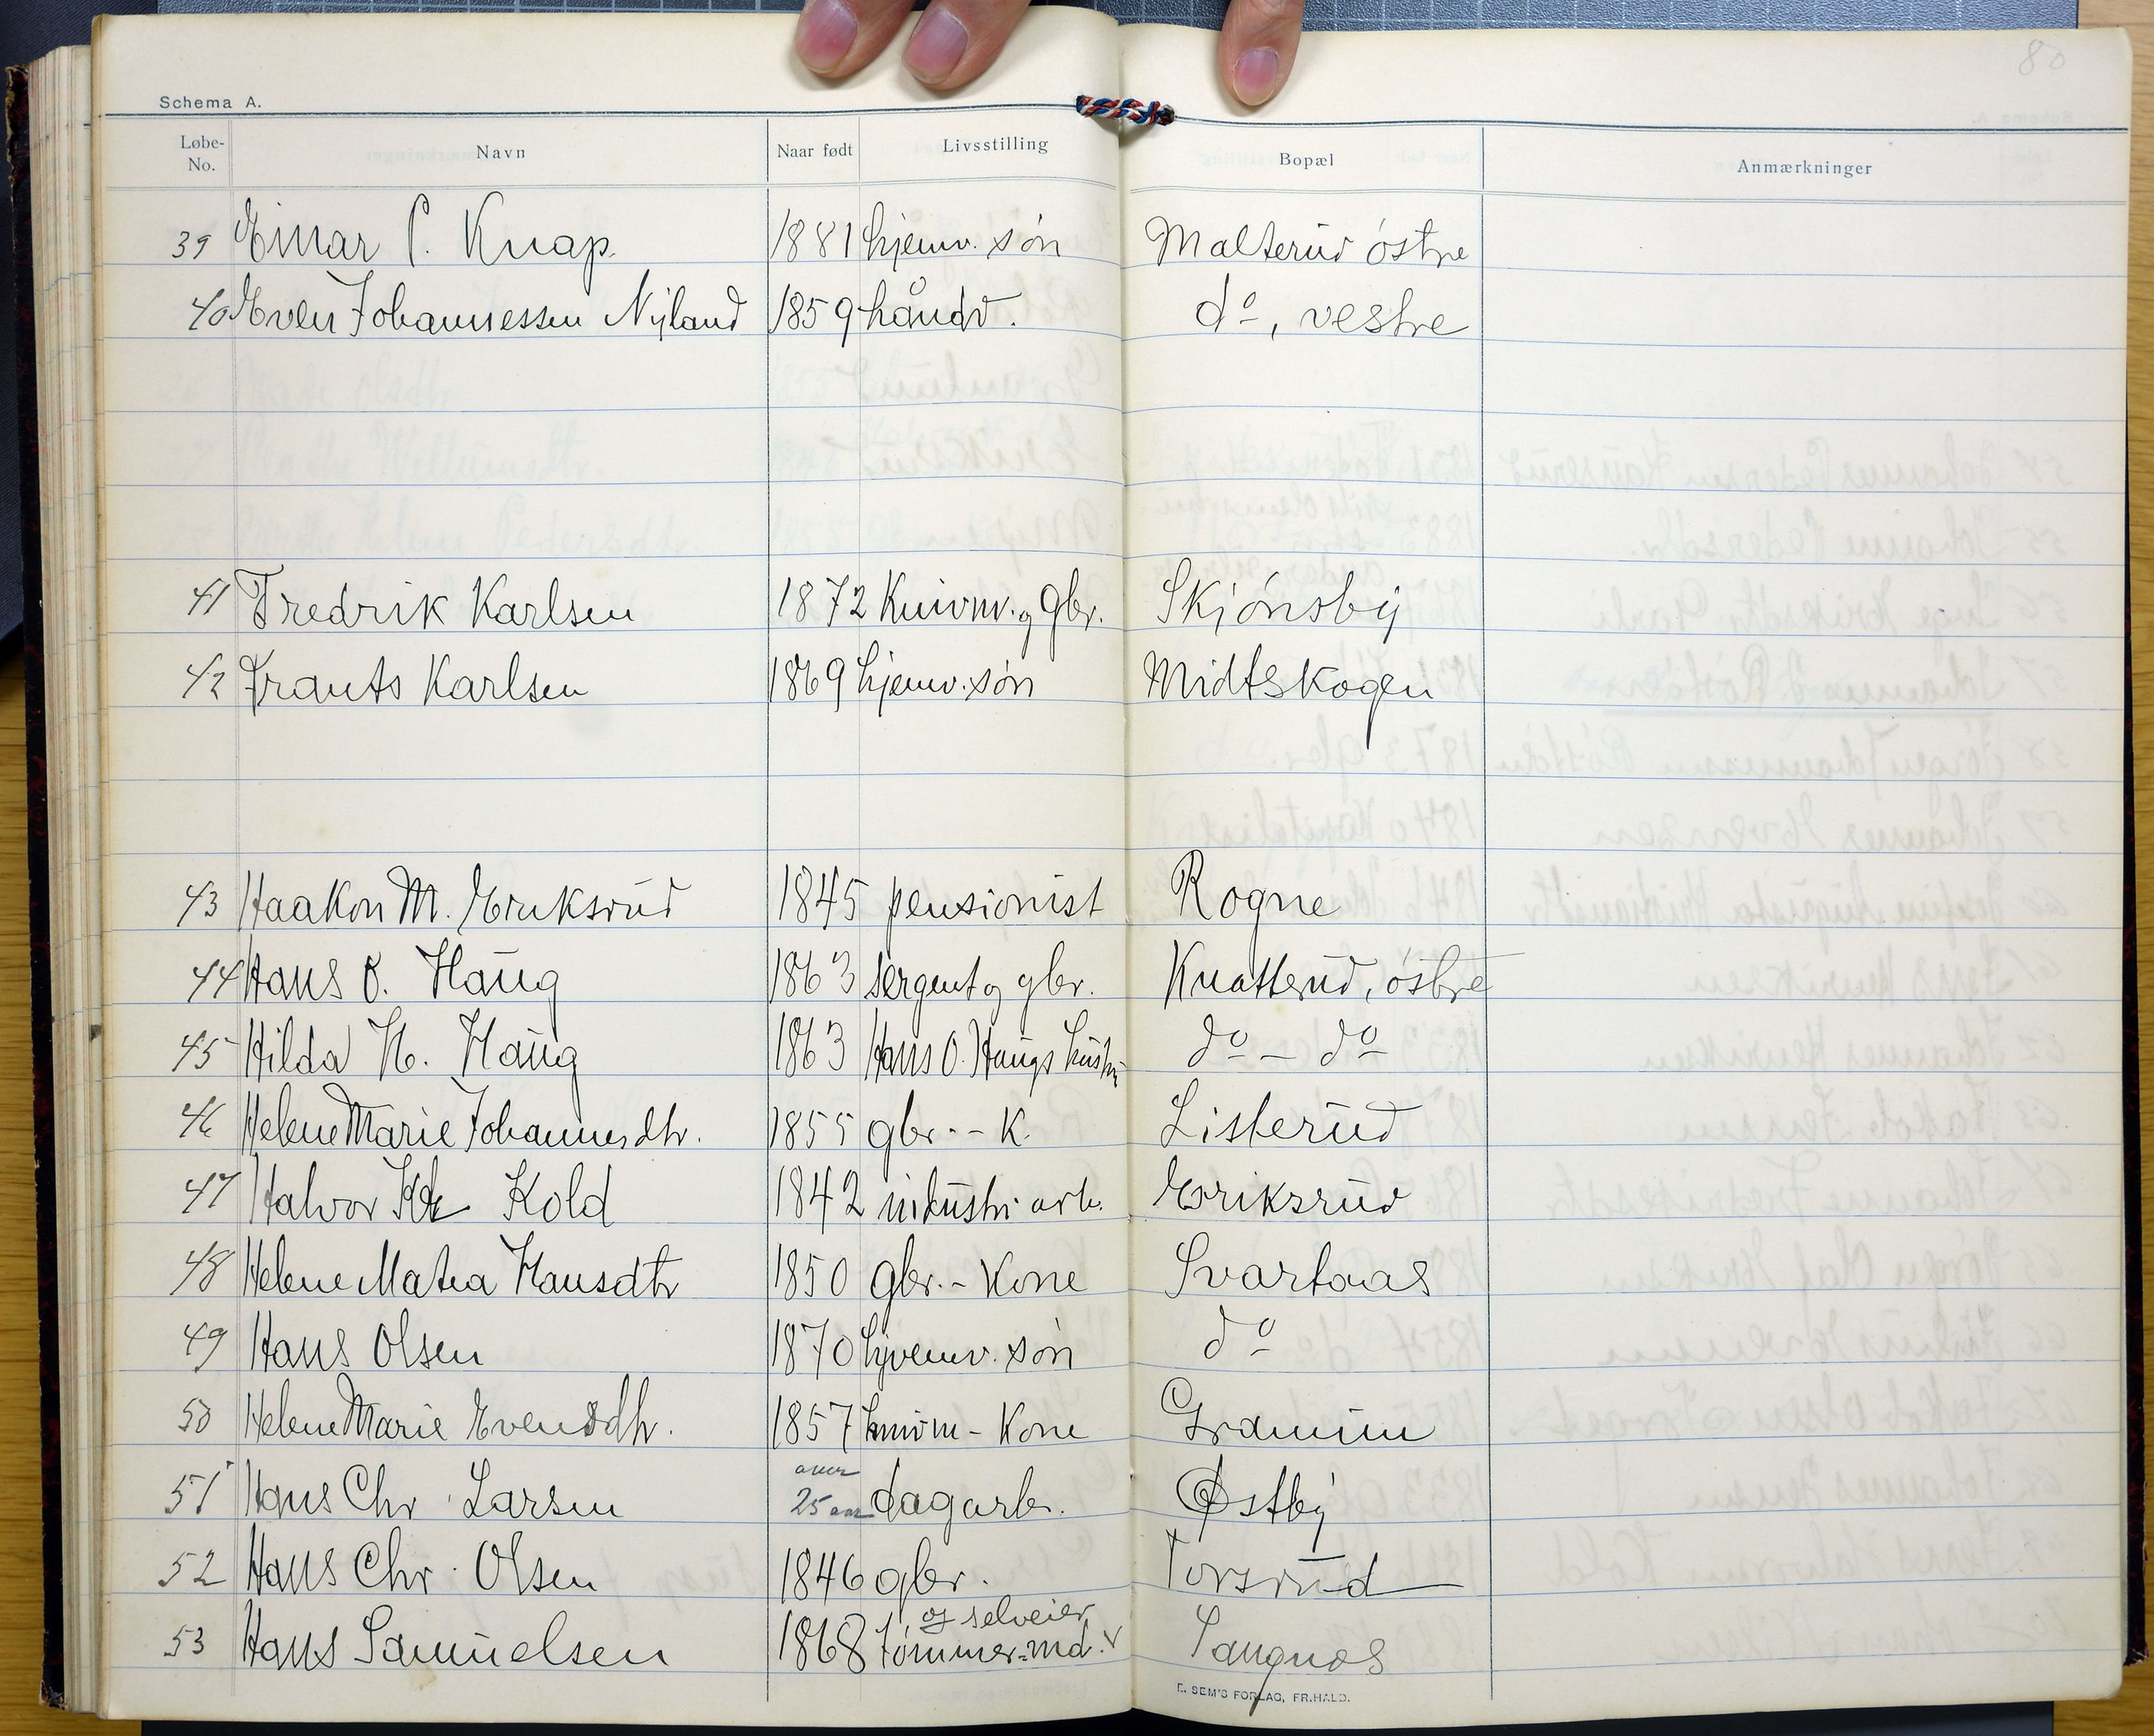 80
Schema A.
Løbe-No. Navn Naar født Livsstilling Bopæl Anmærkninger
39 Einar P. Knap. 1881 hjemv. søn Malterud østre
40 Even Johannessen Nyland 1859 håndv. do, vestre
41 Fredrik Karlsen 1872 Kuivm. og gbr. Skjønsby
42 Frants Karlsen 1869 hjemv. søn Midtskogen
43 Haakon M. Eriksrud 1845 pensionist Rogne
44 Hans O. Haug 1863 sergent og gbr. Knatterud, østre
45 Hilda H. Haug 1863 Hans O. Haugs hustru do - do
46 Helene Marie Johannesdtr. 1855 gbr. - K. Listerud
47 Halvor Kold 1842 industri arb. Eriksrud
48 Helene Matea Hansdtr 1850 gbr. - Kone Svartaas
49 Hans Olsen 1870 hjvemv. søn do
50 Helene Marie Evensdtr. 1857 - Kone
51 Hans Chr Larsen over 25 aar dagarb. Østby
52 Hans Chr. Olsen 1846 gbr. Torsrud
53 Hans Samuelsen 1868 tømmer-md. og selveier Tangnæs
E. SEM'S FORLAG, FR.HALD.